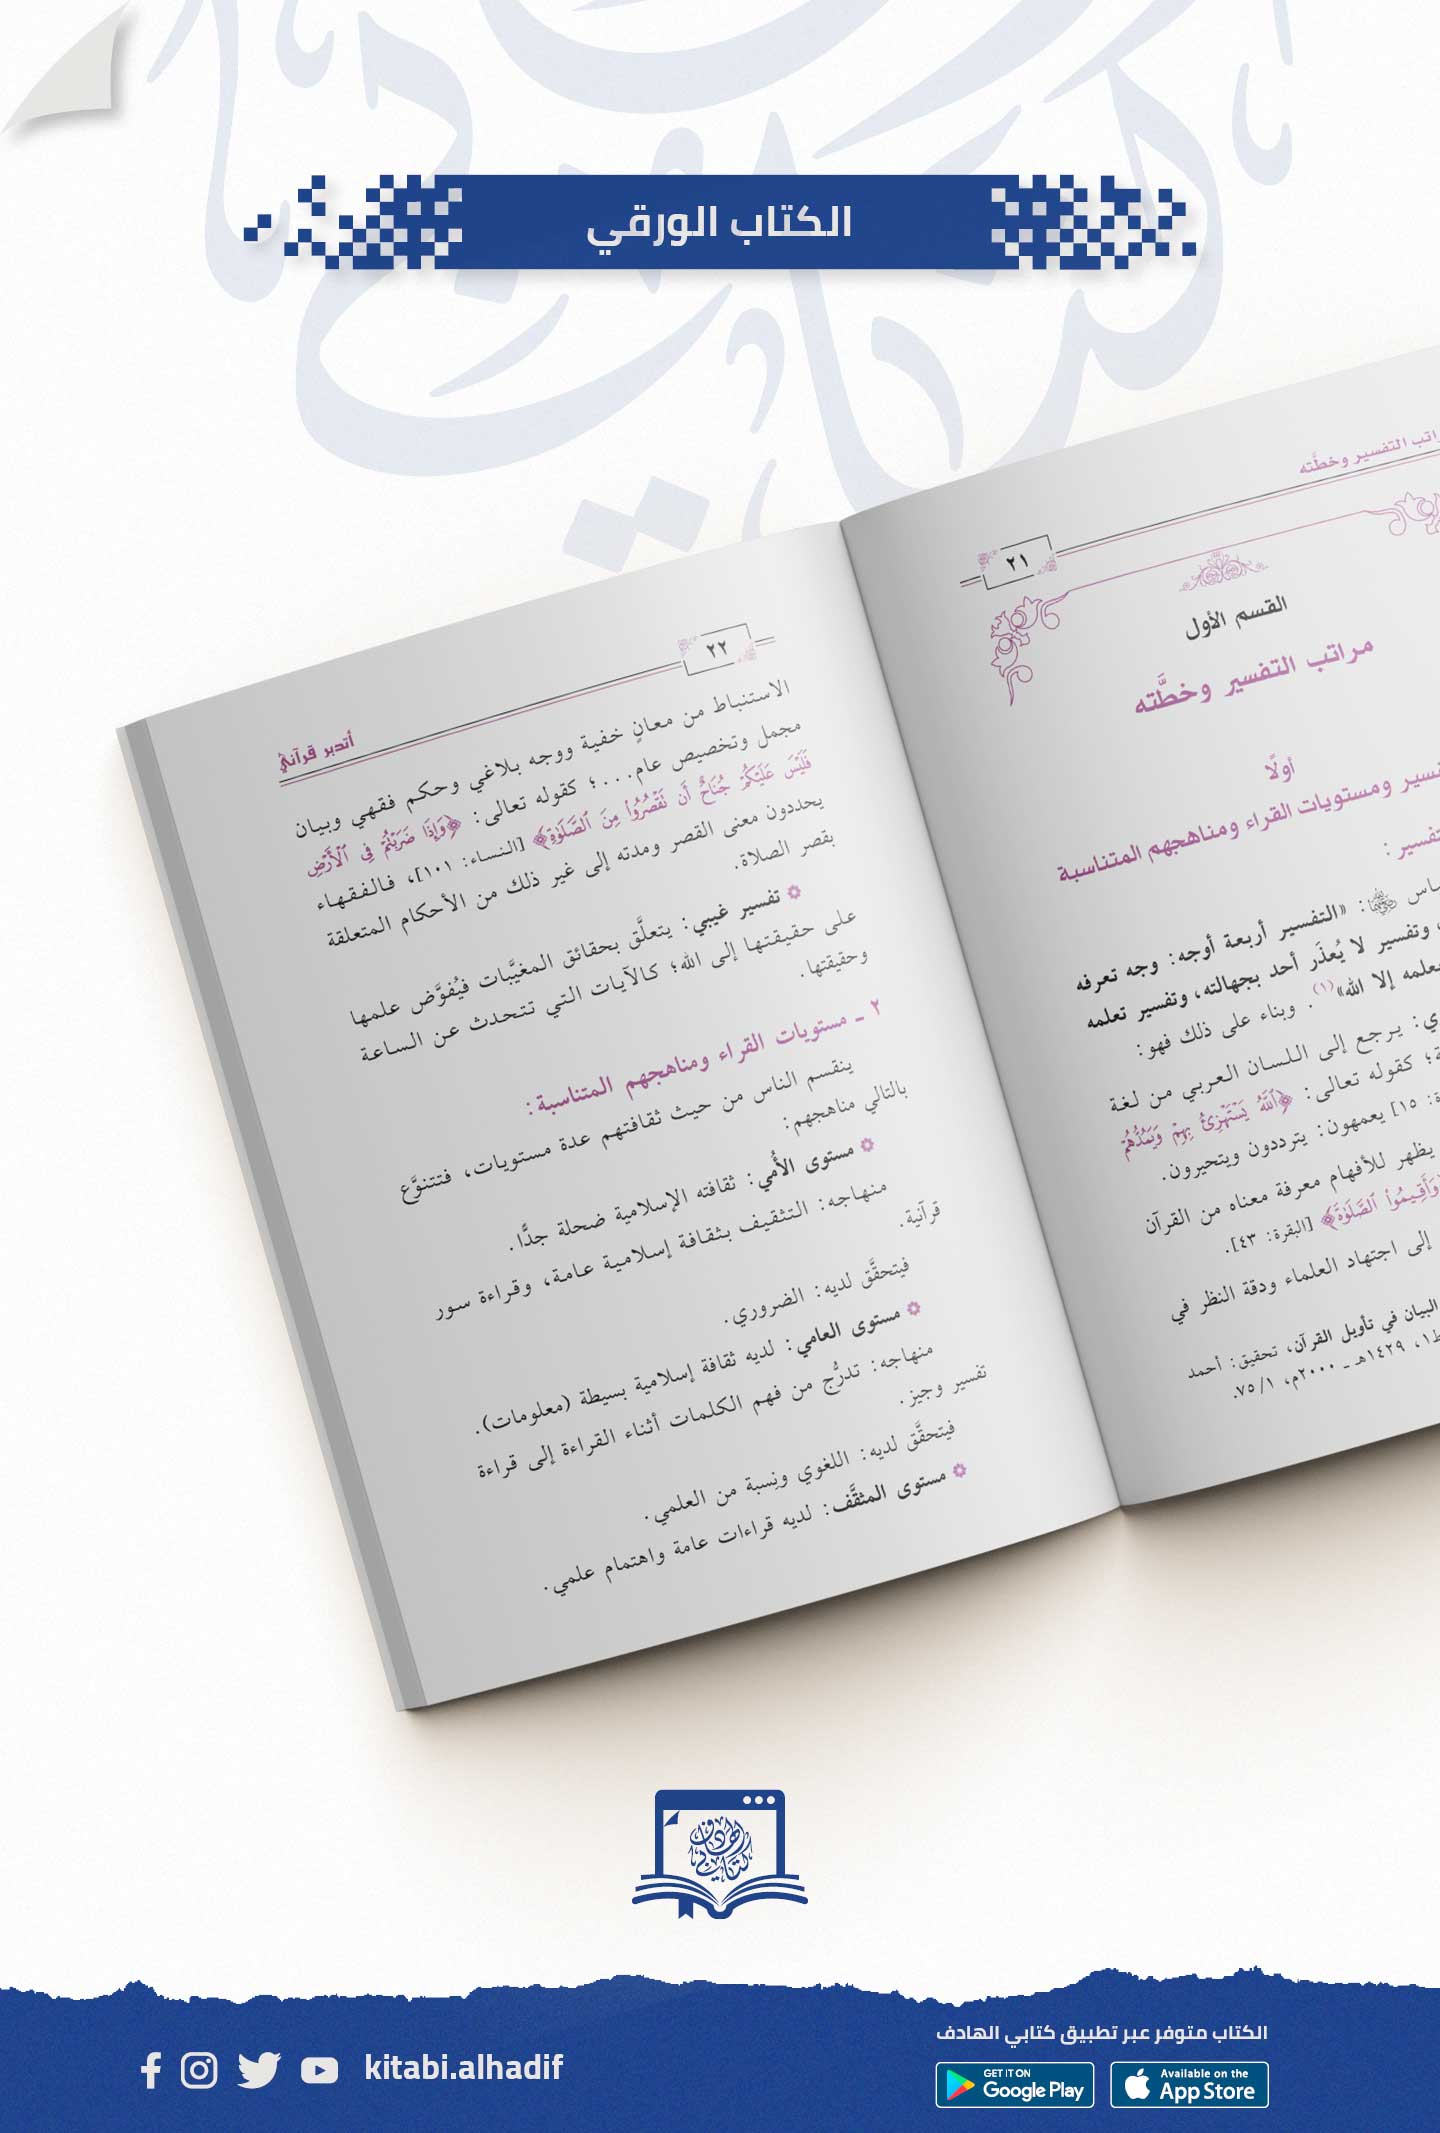 الكتاب الورقي
مراتب التفسير وخطَّته
٢١
القسم الأول
مراتب التفسير وخطَّته
أولًا
ومستويات القراء ومناهجهم المتناسبة
: «التفسير أربعة أوجه: وجه تعرفه
وتفسير لا يُعذَر أحد بجهالته، وتفسير تعلمه
إلا الله»(١). وبناء على ذلك فهو:
يرجع إلى اللسان العربي من لغة
كقوله تعالى: ﴿ٱللَّهُ يَسْتَهْزِئُ بِهِمْ وَيَمُدُّهُمْ
١٥] يعمهون: يترددون ويتحيرون.
يظهر للأفهام معرفة معناه من القرآن
وَأَقِيمُوا۟ ٱلصَّلَوٰةَ﴾ [البقرة: ٤٣].
إلى اجتهاد العلماء ودقة النظر في
البيان في تأويل القرآن، تحقيق: أحمد
ط١، ١٤٢٩هـ ـ ٢٠٠٠م، ١/ ٧٥.
٢٢
أتدبر قرآني
الاستنباط من معانٍ خفية ووجه بلاغي وحكم فقهي وبيان
مجمل وتخصيص عام...؛ كقوله تعالى: ﴿وَإِذَا ضَرَبْتُمْ فِى ٱلْأَرْضِ
فَلَيْسَ عَلَيْكُمْ جُنَاحٌ أَن تَقْصُرُوا۟ مِنَ ٱلصَّلَوٰةِ﴾ [النساء: ١٠١]، فالفقهاء
يحددون معنى القصر ومدته إلى غير ذلك من الأحكام المتعلقة
بقصر الصلاة.
تفسير غيبي: يتعلَّق بحقائق المغيَّبات فيُفوَّض علمها
على حقيقتها إلى الله؛ كالآيات التي تتحدث عن الساعة
وحقيقتها.
٢ ـ مستويات القراء ومناهجهم المتناسبة:
ينقسم الناس من حيث ثقافتهم عدة مستويات، فتتنوَّع
بالتالي مناهجهم:
مستوى الأُمي: ثقافته الإسلامية ضحلة جدًّا.
منهاجه: التثقيف بثقافة إسلامية عامة، وقراءة سور
قرآنية.
فيتحقَّق لديه: الضروري.
مستوى العامي: لديه ثقافة إسلامية بسيطة (معلومات).
منهاجه: تدرُّج من فهم الكلمات أثناء القراءة إلى قراءة
تفسير وجيز.
فيتحقَّق لديه: اللغوي ونِسبة من العلمي.
مستوى المثقَّف: لديه قراءات عامة واهتمام علمي.
كتابي الهادف
الكتاب متوفر عبر تطبيق كتابي الهادف
kitabi.alhadif
GET IT ON
Google Play
Available on the
App Store